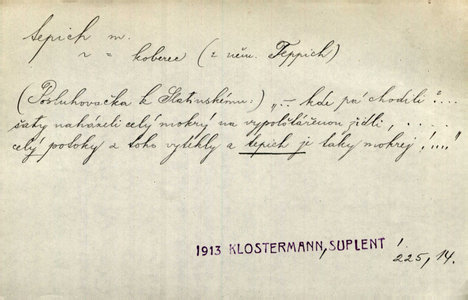 tepich m.
" = koberec (z něm. Teppich)
(Posluhovačka k Slatinskému:) „— kde pá chodili"....
šaty naházeli celý mokrý na vypolštářenou židli, .....
celý potoky z toho vytékly a tepich je taky mokrej!...."
1913 KLOSTERMANN, SUPLENT 1.
225, 14.